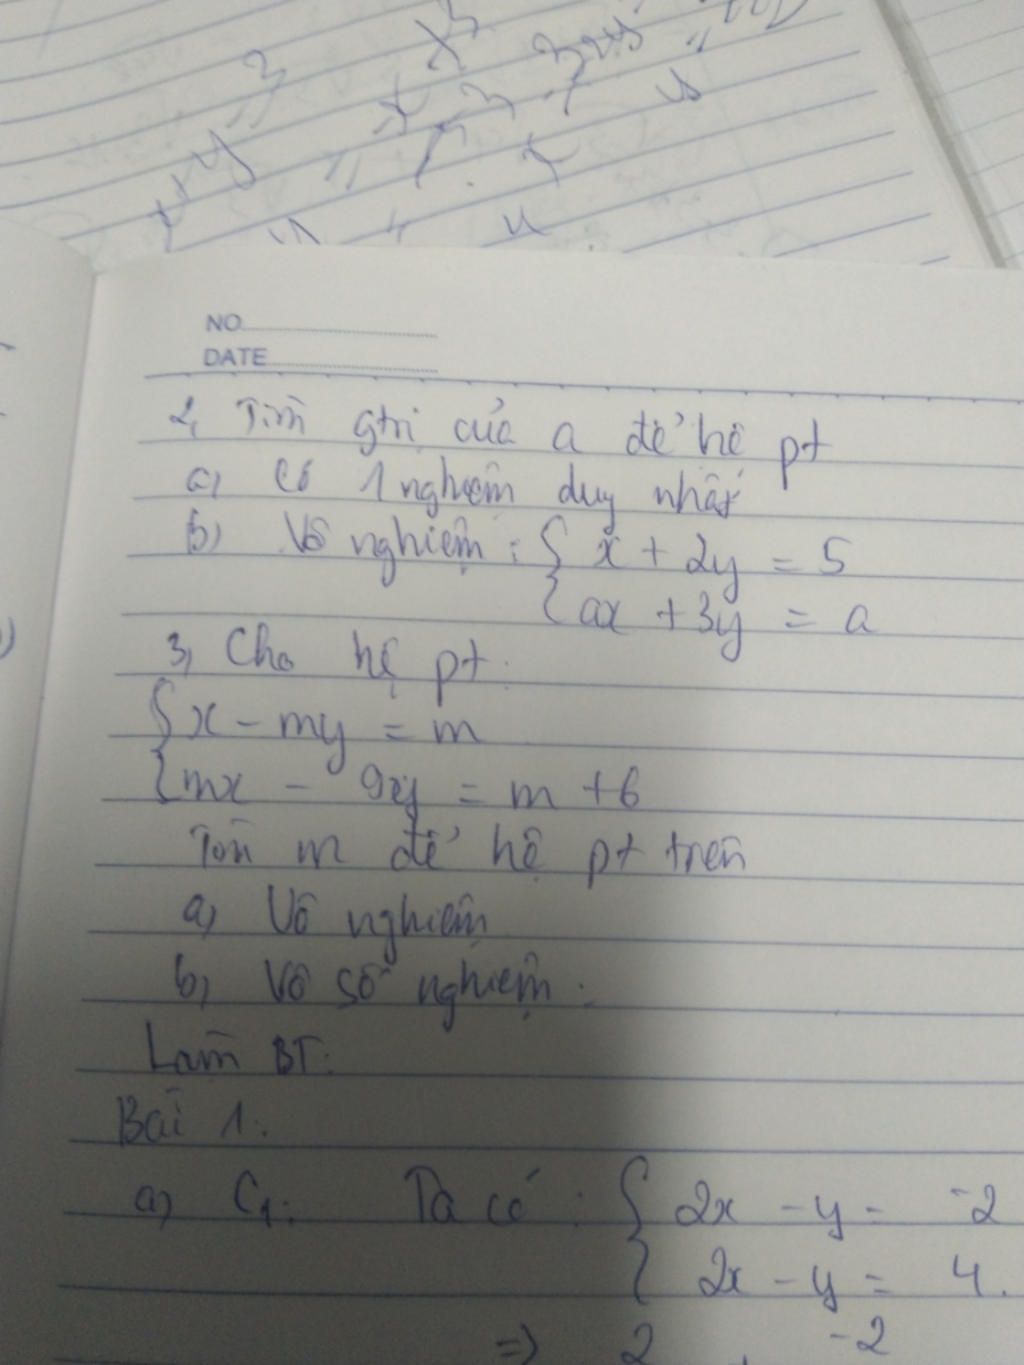 NO
DATE
2, Tìm gtrị của a để hệ pt
a, Có 1 nghiệm duy nhất
b) Vô nghiệm : { x + 2y = 5
{ ax + 3y = a
3, Cho hệ pt:
{ x - my = m
{ mx - 9y = m + 6
Tìm m để hệ pt trên
a, Vô nghiệm
b, Vô số nghiệm.
Làm BT:
Bài 1:
a, C1: Ta có : { 2x - y = -2
{ 2x - y = 4.
=> 2 -2